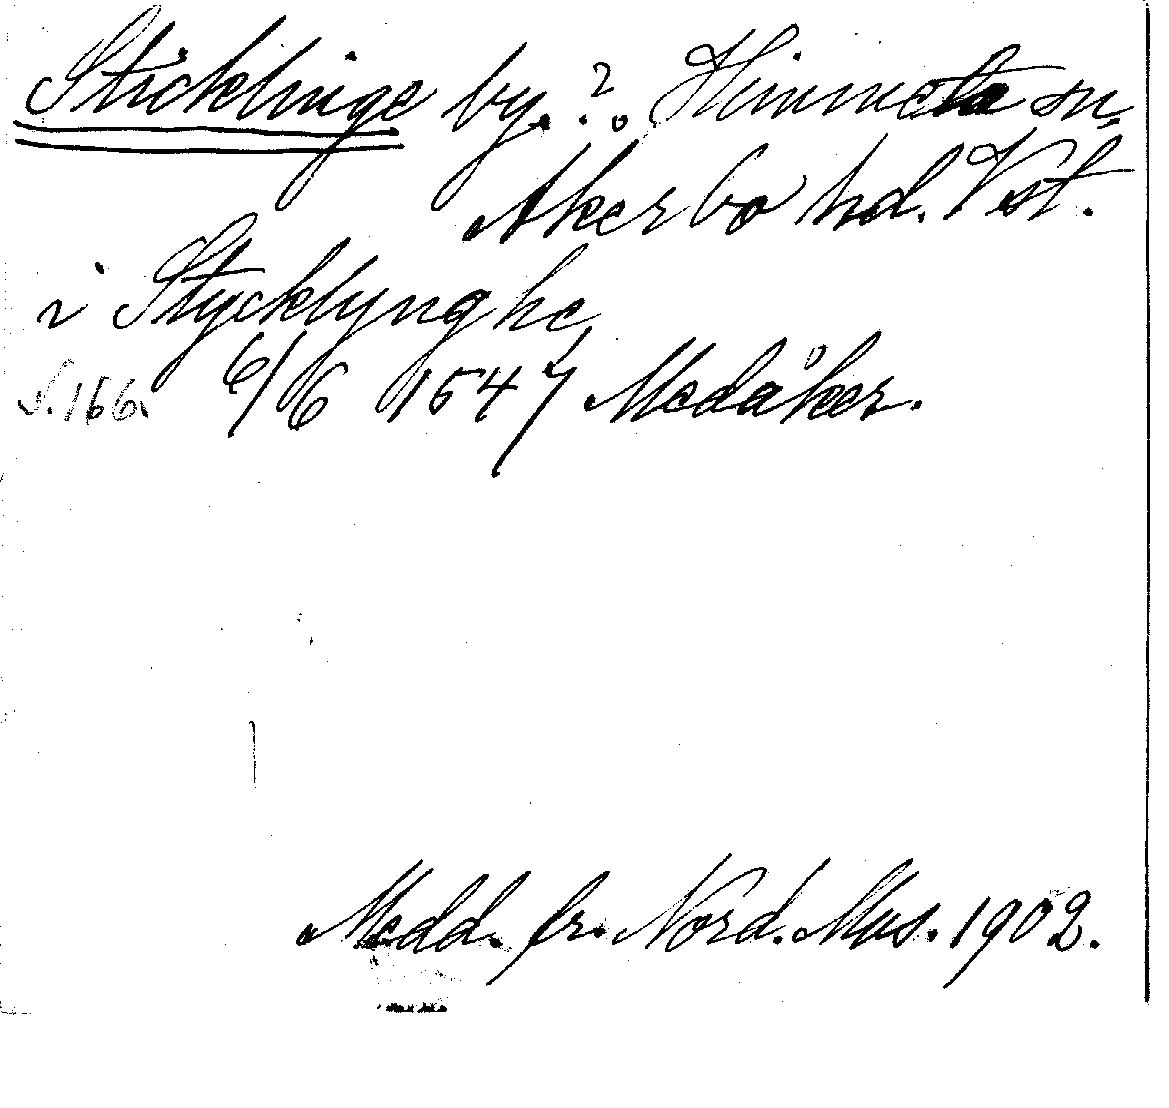 Sticklinge by. ?. Himmeta sn,
Akerbo hd. Vst.
i Stycklynghe
s. 166. 6/6 1547 Medåker.
Medd. fr. Nord. Mus. 1902.